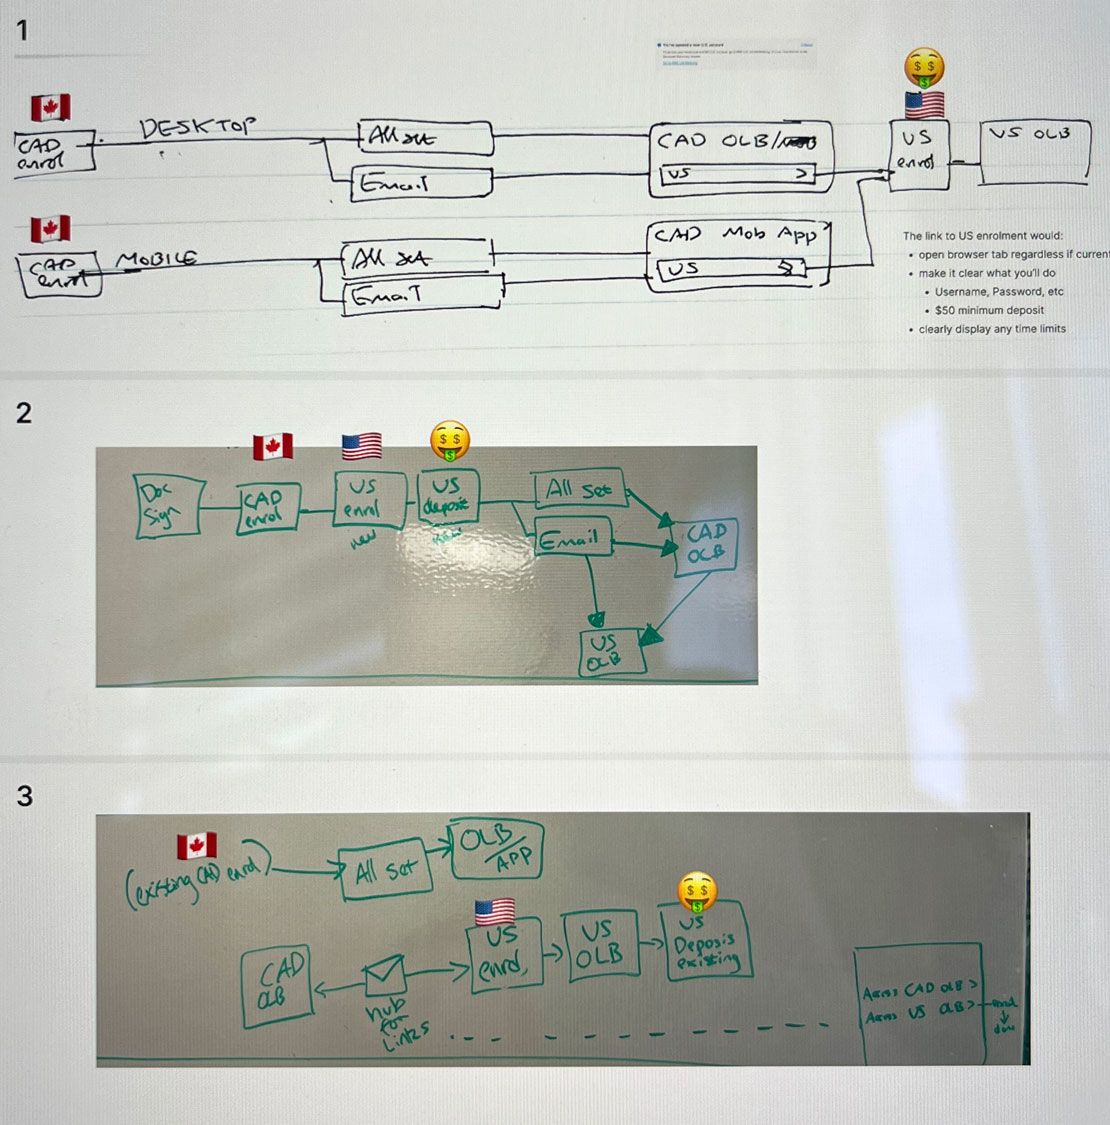 1
CAD
enrol
DESKTOP
All set
Email
CAD OLB/
US >
US
enrol
US OLB
CAD
enrol
MOBILE
All set
Email
CAD Mob App
US >
The link to US enrolment would:
• open browser tab regardless if current
• make it clear what you'll do
• Username, Password, etc
• $50 minimum deposit
• clearly display any time limits
2
Doc
Sign
CAD
enrol
US
enrol
new
US
deposit
new
All Set
Email
CAD
OLB
US
OLB
3
(existing CAD enrol)
All Set
OLB/
APP
CAD
OLB
hub
for
Links
US
enrol,
US
OLB
US
Deposis
existing
Access CAD OLB >
Access US OLB >
enrol
done